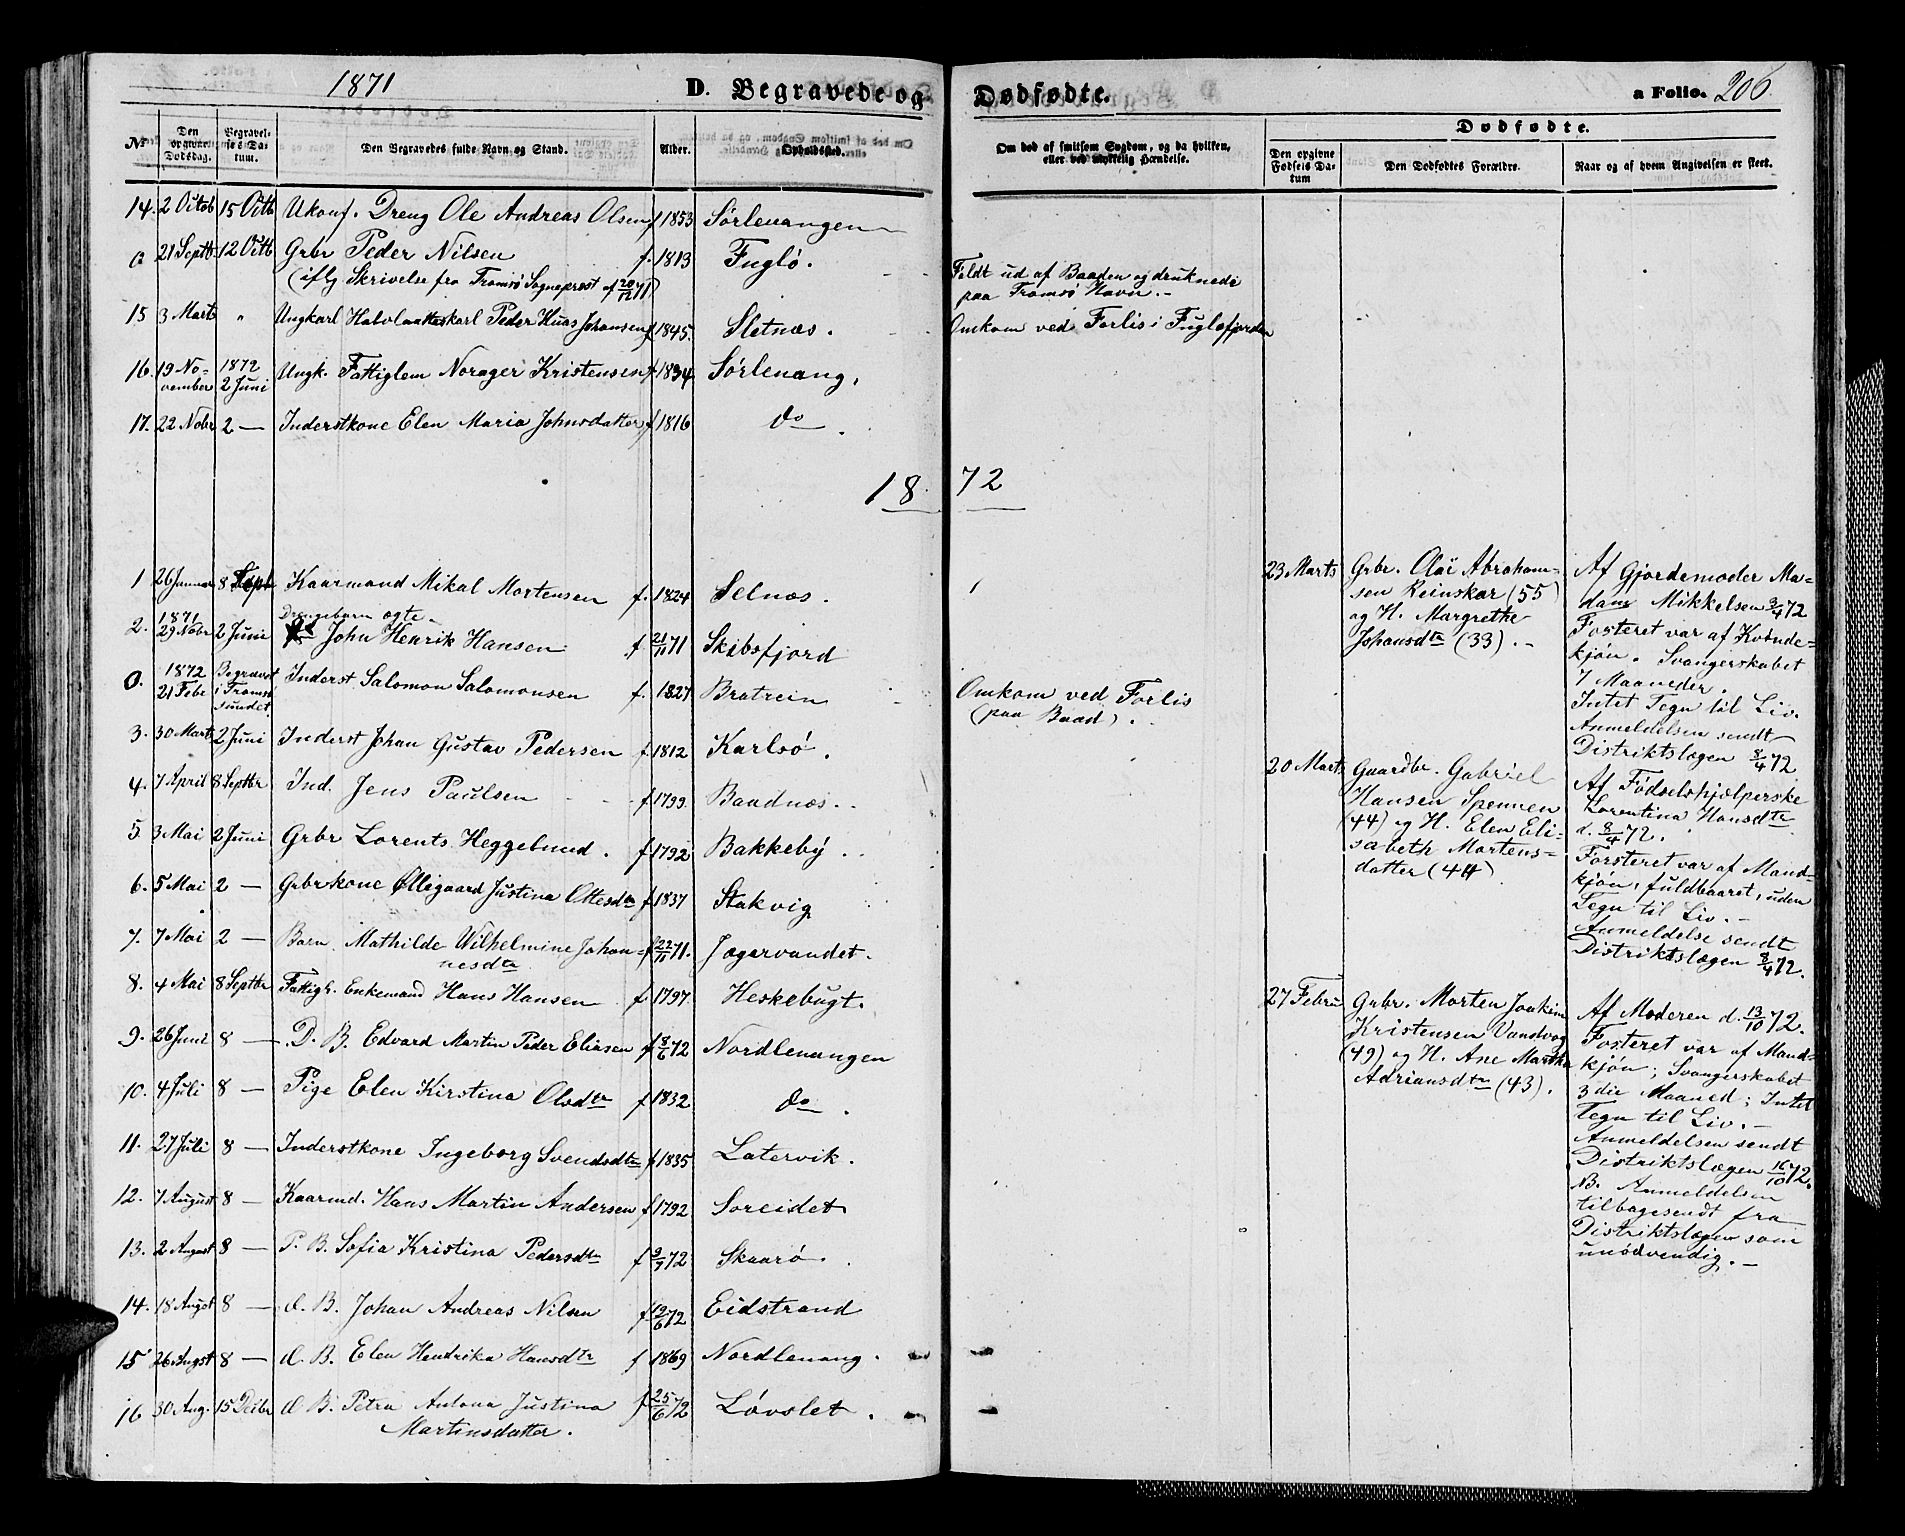 1871 D. Begravede og Dødfødte. a Folio. 206
No
Den opgivne Dødsdag.
Begravelses Datum.
Den Begravedes fulde Navn og Stand.
Alder.
Opholdssted.
Om død af smitsom Sygdom, og da hvilken, eller ved ulykkelig Hændelse.
Dødfødte.
Den opgivne Fødsels Datum
Den Dødfødtes Forældre.
Naar og af hvem Angivelsen er skeet.
14. 2 Octob 15 Octb Ukonf. Dreng Ole Andreas Olsen f 1853 Sørlenangen
0 21 Septb. 12 Octb Grbr Peder Nilsen f. 1813 Fuglø.
(iflg Skrivelse fra Tromsø Sogneprest af 20/12 71)
Feldt ud af Baaden og druknede
paa Tromsø Havn. -
15 3 Marts " Ungkarl Peder Johansen f 1845. Sletnæs. Omkom ved Forlis i Fugløfjorden
16. 19 November 1872 2 Juni Ungk. Fattiglem Norager Kristensen f 1834 Sørlenang,
17. 22 Nobr 2 — Inderstkone Elen Maria Johnsdatter f 1816 do
1872
1 26 Januar 8 Septb Kaarmand Mikal Mortensen f. 1824 Selnæs.
2. 1871 29 Nobr 2 Juni Drengebarn ægte John Henrik Hansen f 21/11 71 Skibsfjord
0. 1872 21 Febr Begravet i Tromsø Inderst Salomon Salomonsen f. 1827 Bratrein
Omkom ved Forlis
(paa Baad).
3. 30 Marts 2 Juni Inderst Johan Gustav Pedersen f. 1812 Karlsø.
4. 7 April 8 Septbr Ind. Jens Paulsen f 1799. Baadnæs.
5 3 Mai 2 Juni Grbr Lorents Heggelund. f. 1792 Bakkeby
6. 5 Mai 2 — Grbrkone Ølligaard Justina Ottesdtr f. 1837 Stakvig
7. 7 Mai 2 — Barn Mathilde Wilhelmine Johannesdtr f 22/11 71. Jægervandet.
8. 4 Mai 8 Septbr Fattigl. Enkemand Hans Hansen f 1797. Heskebugt.
9. 26 Juni 8 — D. B. Edvard Martin Peder Eliasen f 8/6 72 Nordlenangen
10. 4 Juli 8 — Pige Elen Kirstina Olsdtr f 1832 do.
11. 27 Juli 8 — Inderstkone Ingeborg Svendsdtr f 1835 Latervik.
12. 7 August 8 — Kaarmd. Hans Martin Andersen f 1792 Soreidet
13. 2 August 8 — P. B. Sofia Kristina Pedersdtr f 9/7 72 Skaarø.
14. 18 Augst 8 — d. B. Johan Andreas Nilsen f 19/6 72 Eidstrand
15 26 Augst 8 — d. B. Elen Hendrika Hansdtr f 1869 Nordlenang.
16 30 Aug. 15 Decbr d B. Petra Antona Justina f 25/6 72 Løvslet.
Martinsdatter.
23 Marts
Grbr. Olai Abraham-
sen Reinskar (55)
og H. Margrethe
Johansdtr (33). -
Af Gjordemoder Ma-
dam Mikkelsen 3/4 72
Fosteret var af Kvinde-
kjøn. Svangerskabet
7 Maaneder.
Intet Tegn til Liv.
Anmeldelsen sendt
Distriktslægen 8/4 72
20 Marts
Gaardbr. Gabriel
Hansen Spennen
(44) og H. Elen Eli-
sabeth Mortens-
datter (44)
Af Fødselshjælperske
Lorentina Hansdtr
d. 8/4 72.
Forsteret var af Mand-
kjøn, fuldbaaret, uden
Tegn til Liv. -
Anmeldelse sendt
Distriktslægen 8/4 72.
27 Febru
Grbr. Morten Joakim
Kristensen Vandvog
(49) og H. Ane Martha
Adriansdtr (43).
Af Moderen d. 13/10 72.
Fosteret var af Mand-
kjøn; Svangerskabet
3die Maaned; Intet
Tegn til Liv. -
Anmeldelsen sendt
Distriktslægen 16/10 72.
NB. Anmeldelsen
tilbagesendt fra
Distriktslægen som
unødvendig. -